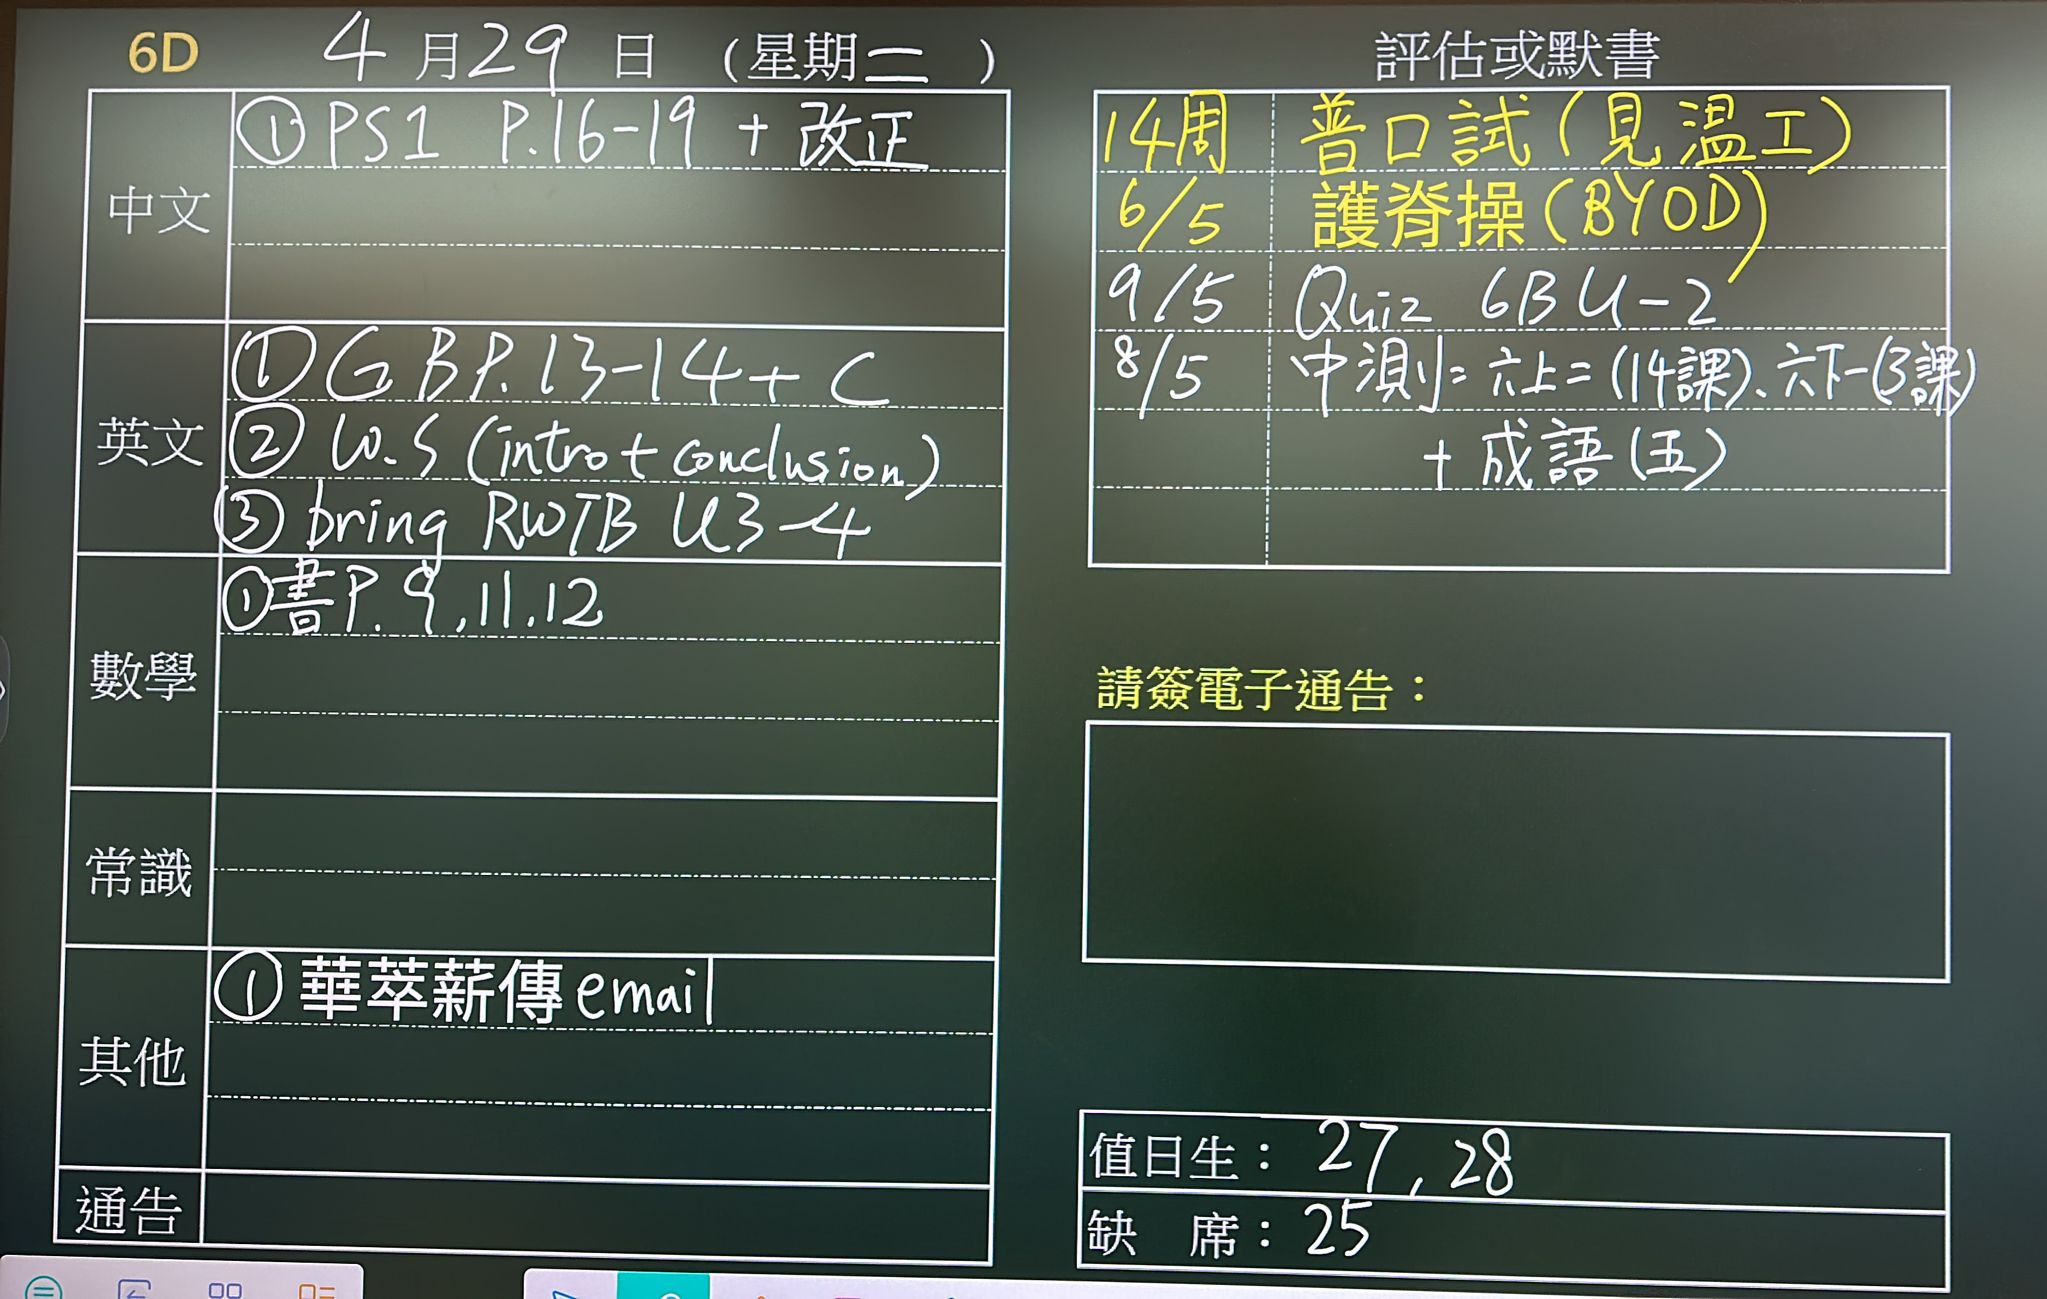 6D 4月29日 (星期二)
中文
①PS1 P.16-19 + 改正
英文
①GBP.13-14+C
②W.S (intro+conclusion)
③bring RWTB U3-4
數學
①書P.9,11,12
常識
其他
①華萃薪傳email
通告
評估或默書
14周 普口試(見溫工)
6/5 護脊操(BYOD)
9/5 Quiz 6B U-2
8/5 中測=六上二(14課)、六下一(3課)
+ 成語(五)
請簽電子通告：
值日生：27, 28
缺 席：25